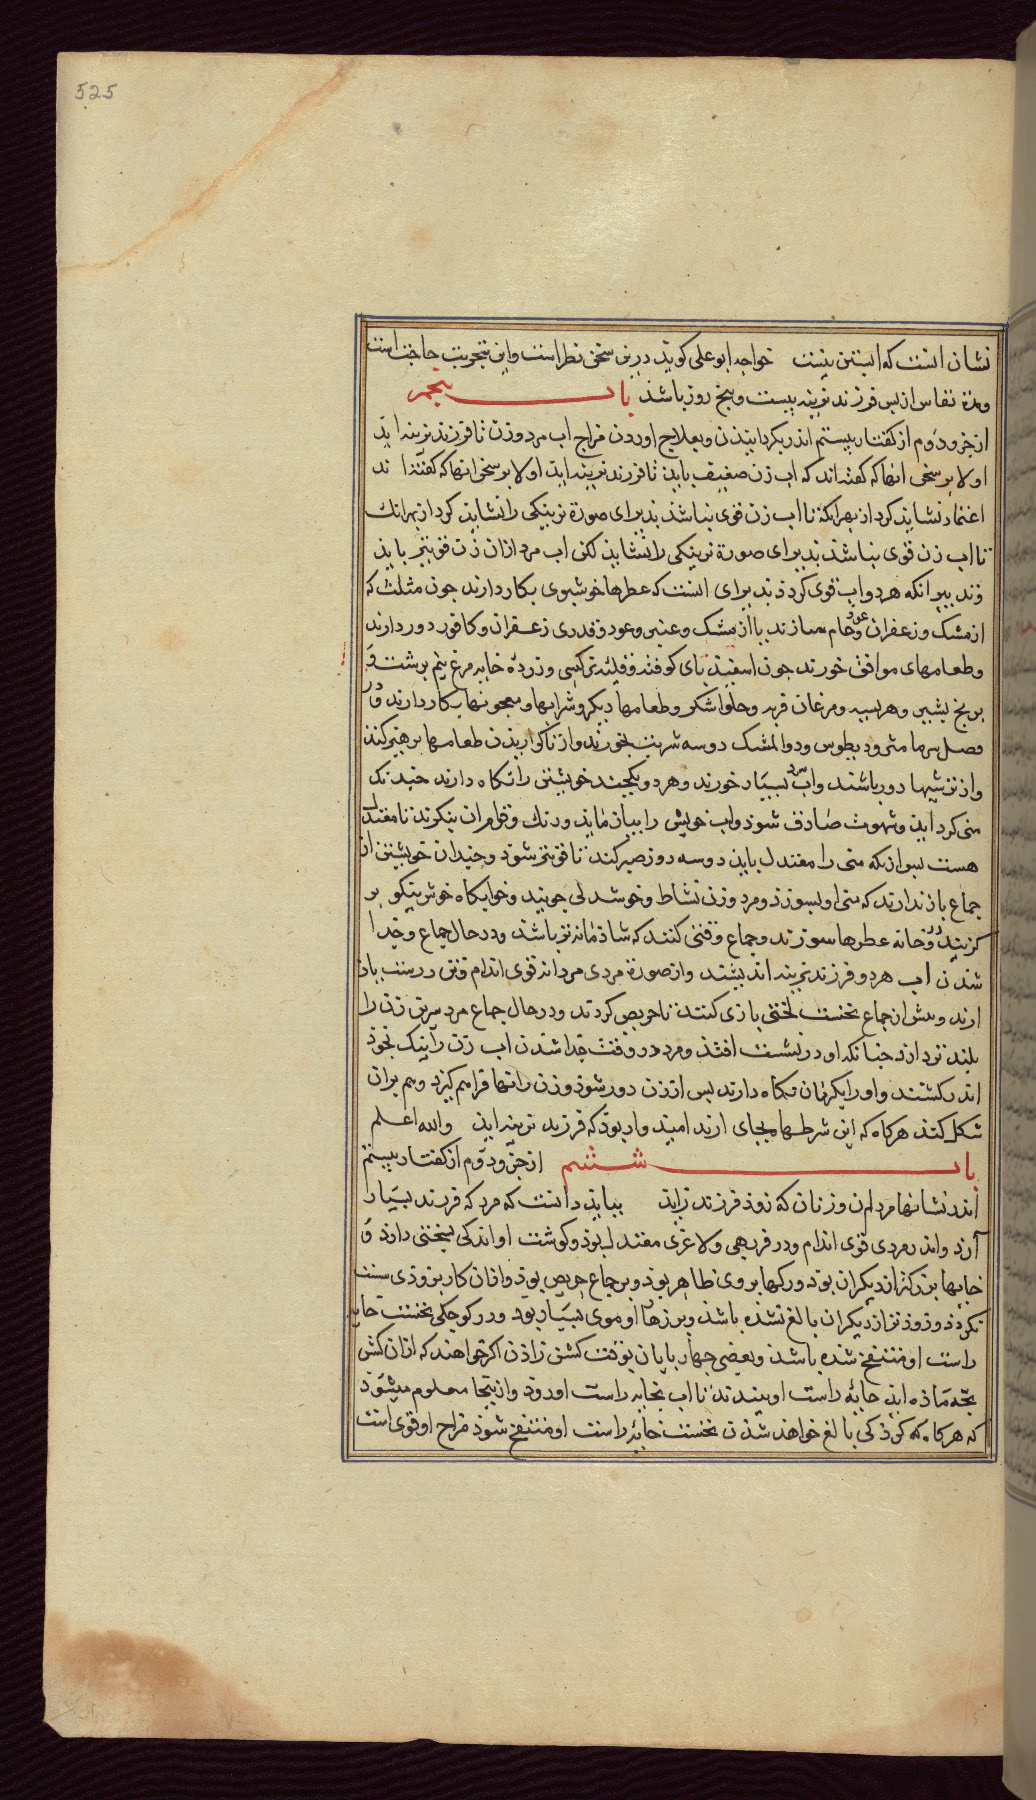 525
نشان انست که ابستن نیست خواجه ابو علی کوید درین سخن نظر است واین بتجربت حاجت است
ومدة نفاس از پس فرزند نرینه بیست وپنج روز باشد باب پنجم
از جزو دوم از کفتار بیستم اندر یکرد ایتذن وبعلاج اوردن مزاج اب مرد وزن تا فرزند نرینه اید
اولا بر سخن انهاکه کفته اند که اب زن ضعیف باید تا فرزند نرینه اید اولا بر سخن انهاکه کفته اند
اعتماد نشاید کرد از بهر انکه تا اب زن قوی نباشد پذیرای صورة نرینکی را نشاید کرد از بهر انک
تا اب زن قوی نباشد پذیرای صورة نرینکی را نشاید لکن اب مرد ازان زن قویتر باید
وتدبیر انکه هر دو اب قوی کردد تدبیر ای انست که عطرها خوشبوی بکار دارند جون مثلث که
از مشک و زعفران وعود خام سازند یا از مشک وعنبر وعود وقدری زعفران وکافور دور دارند
وطعامهای موافق خورند جون اسفیذ بای کوفته وقلیه نرکسی وزرده خایه مرغ نیم برشت و
برنج بشیر وهریسه ومرغان فربه وحلوا شکر وطعامها دیکر وشرابها ومعجونها بکار دارند ودر
فصل سرما مثرودیطوس ودوا المشک دوسه شربت بخورند واز ناکواریذن طعامها پرهیز کنند
واز ترشیها دور باشند واب سرد بسیار خورند وهر دو یکجند خویشتن را نکاه دارند جندنک
منی کرد اید وشهوت صادق شود واب خویش را بیازماید ورنک وقوام ان بنکرند تا معتدل
هست پس ازنکه منی را معتدل یابند دوسه روز صبر کنند تا قویتر شود وجندان خویشتن از
جماع باز ندارند که منی او بسوزد ومرد وزن نشاط وخوشدلی جویند وخوابکاه خوش نیکو بر
کزینند ودر خانه عطرها سوزند وجماع وقتی کنند که شادمانه تر باشند ودر حال جماع وجدا
شدن اب هر دو فرزند نرینه اندیشند واز صورة مردی مردانه قوی اندام وتن درست یاد
ارند وپیش از جماع نخست لختی بازی کنند تا حریص کردند ودر حال جماع مرد سرین زن را
بلند تر دارد جنانکه او در پشت افتذ ومرد در وقت جدا شدن اب زن را نیک بخود
اندر کشند واورا یکزمان نکاه دارند پس از زن دور شود وزن رانها فراهم کیرد وهم بران
شکل کند هرکاه که این شرطها بجای ارند امید وار بود که فرزند نرینه اید والله اعلم
باب ششم از جزو دوم از کفتار بیستم
اندر نشانها مردان وزنان که زود فرزند زاید بباید دانست که مرد که فرزند بسیار
آرد واندر مردی قوی اندام ودر فربهی ولاغری معتدل بود وکوشت او اندکی بسختی دارد و
خایها بزرکتر از دیکران بود ورکها بروی ظاهر بود وبر جماع حریص بود وازان کار بزودی سست
نکردد وزودتر از دیکران بالغ شده باشد وبرزهار او موی بسیار بود ودر کوجکی نخست خایه
راست او منتفخ شده باشد وبعضی جهار پایان بوقت کشن زادن اکر خواهند که ازان کش
بجه ماده اید خایه راست او ببندند تا اب بخایه راست اورود وازینجا معلوم میشود
که هرکاه که کودکی بالغ خواهد شدن نخست خایه راست او منتفخ شود مزاج او قوی است